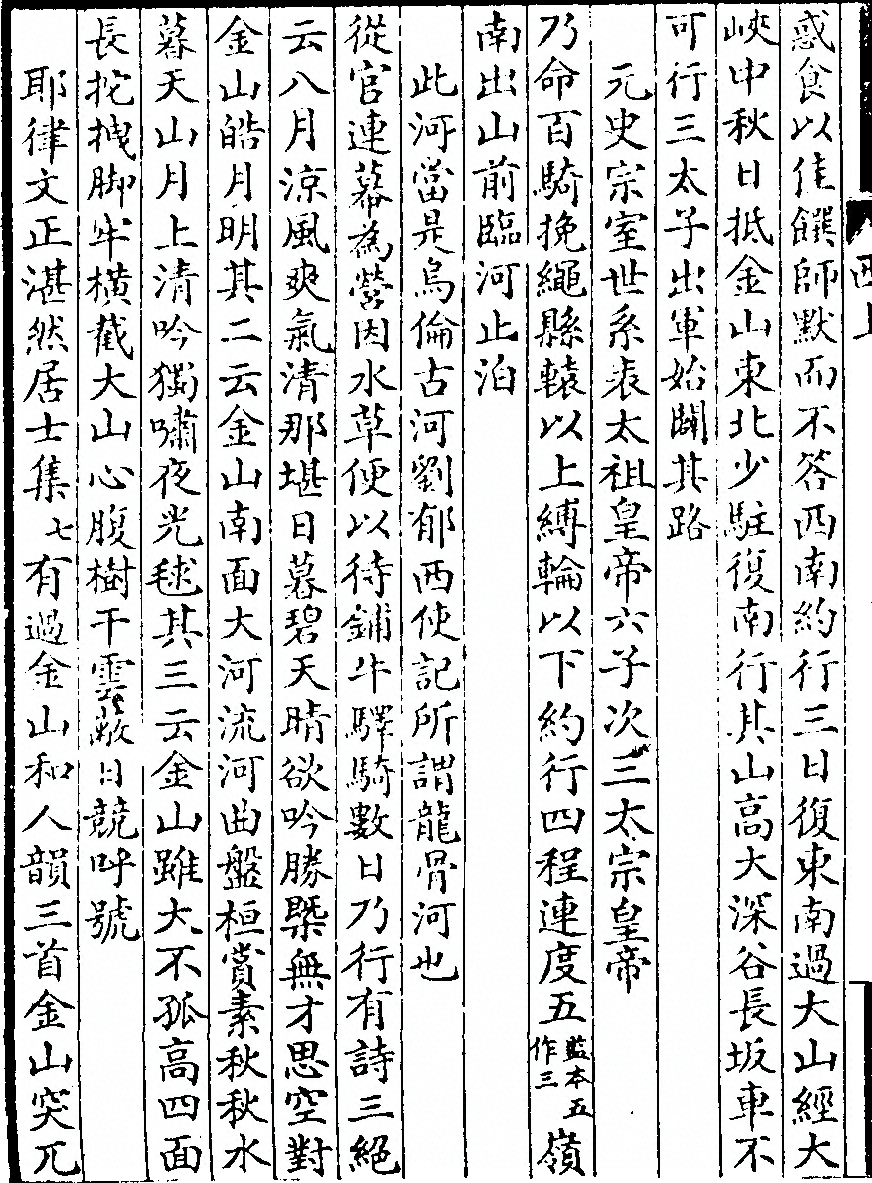 西上
惑食以佳饌師默而不答西南約行三日復東南過大山經大
峽中秋日抵金山東北少駐復南行其山高大深谷長坂車不
可行三太子出軍始闢其路
元史宗室世系表太祖皇帝六子次三太宗皇帝
乃命百騎挽繩縣轅以上縛輪以下約行四程連度五監本五作三嶺
南出山前臨河止泊
此河當是烏倫古河劉郁西使記所謂龍骨河也
從官連幕為營因水草便以待鋪牛驛騎數日乃行有詩三絕
云八月涼風爽氣清那堪日暮碧天晴欲吟勝槩無才思空對
金山皓月明其二云金山南面大河流河曲盤桓賞素秋秋水
暮天山月上清吟獨嘯夜光毬其三云金山雖大不孤高四面
長拕拽脚牢橫截大山心腹樹干雲蔽日競呼號
耶律文正湛然居士集七有過金山和人韻三首金山突兀